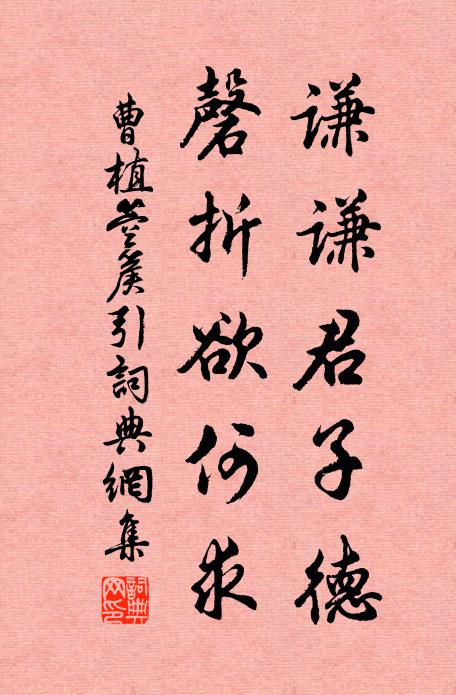 謙謙君子德
磬折欲何求
曹植箜篌引詞典網集
詞典網印